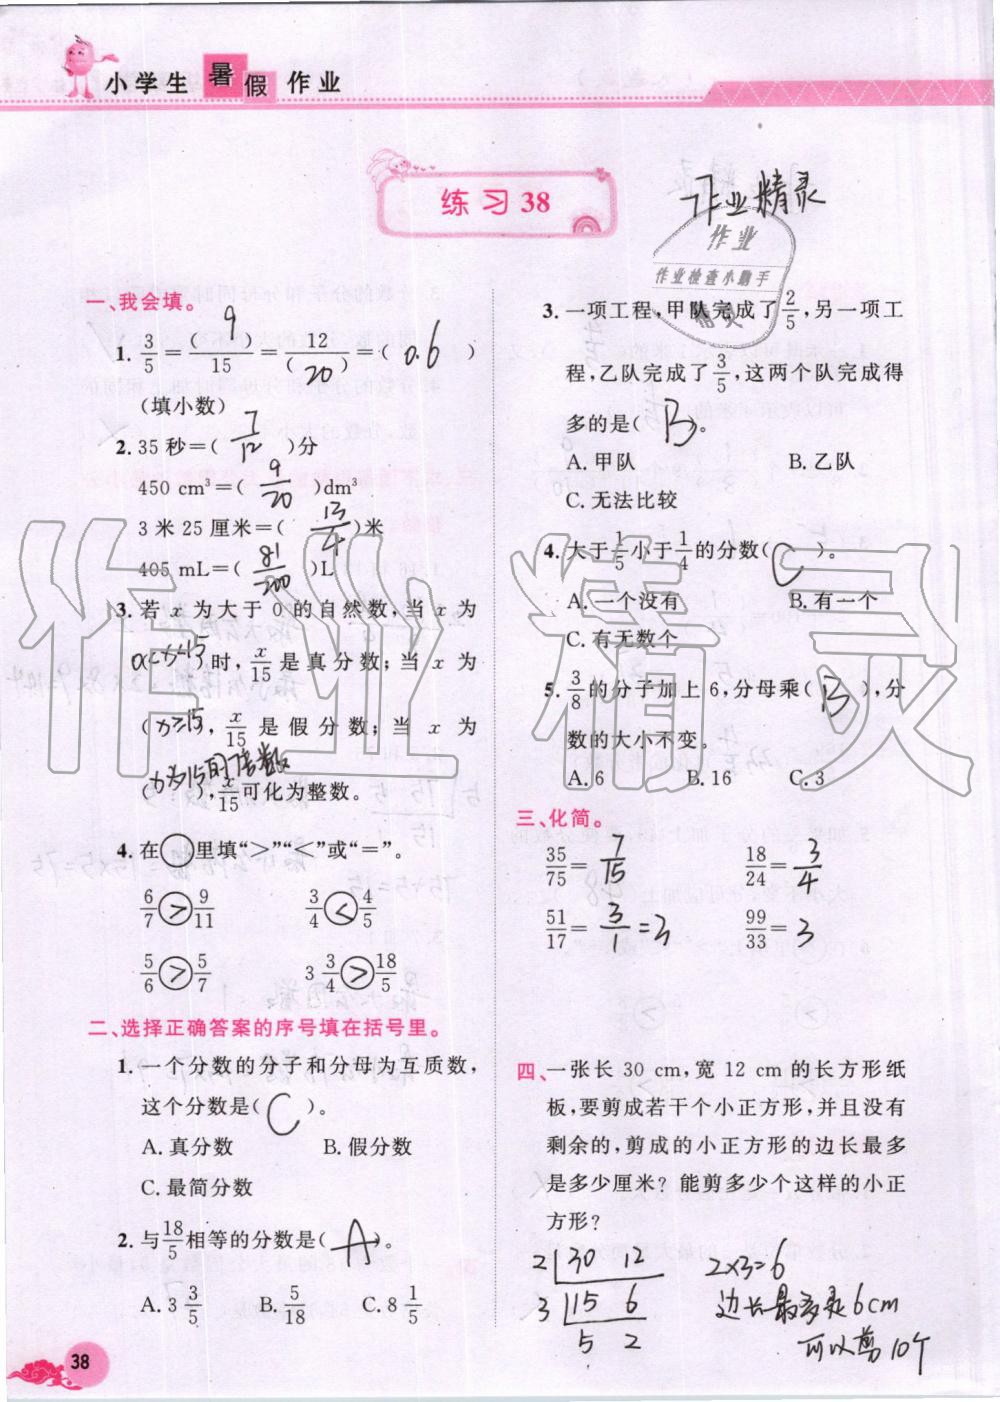 小学生 暑假 作业
练习 38
作业精灵
作业
作业检查小助手
精灵
一、我会填。
1. 3/5=(9)/15=12/(20)=(0.6)
(填小数)
2. 35 秒=( 7/12 )分
450 cm³=( 9/20 )dm³
3 米 25 厘米=( 13/4 )米
405 mL=( 81/200 )L
3. 若 x 为大于 0 的自然数,当 x 为
0<x<15时, x/15 是真分数;当 x 为
(x≥15), x/15 是假分数;当 x 为
(x为15的倍数), x/15可化为整数。
4. 在○里填“>”“<”或“=”。
6/7 > 9/11 3/4 < 4/5
5/6 > 5/7 3 3/4 > 18/5
二、选择正确答案的序号填在括号里。
1. 一个分数的分子和分母为互质数,
这个分数是( C )。
A. 真分数 B. 假分数
C. 最简分数
2. 与18/5相等的分数是( A )。
A. 3 3/5 B. 5/18 C. 8 1/5
3. 一项工程,甲队完成了 2/5,另一项工
程,乙队完成了 3/5,这两个队完成得
多的是( B )。
A. 甲队 B. 乙队
C. 无法比较
4. 大于 1/5 小于 1/4 的分数( C )。
A. 一个没有 B. 有一个
C. 有无数个
5. 3/8 的分子加上 6,分母乘( B ),分
数的大小不变。
A. 6 B. 16 C. 3
三、化简。
35/75= 7/15 18/24= 3/4
51/17= 3/1 =3 99/33= 3
四、一张长 30 cm,宽 12 cm 的长方形纸
板,要剪成若干个小正方形,并且没有
剩余的,剪成的小正方形的边长最多
是多少厘米? 能剪多少个这样的小正
方形?
2 30 12 2×3=6
3 15 6 边长最多是6cm
5 2 可以剪10个
38
作业精灵